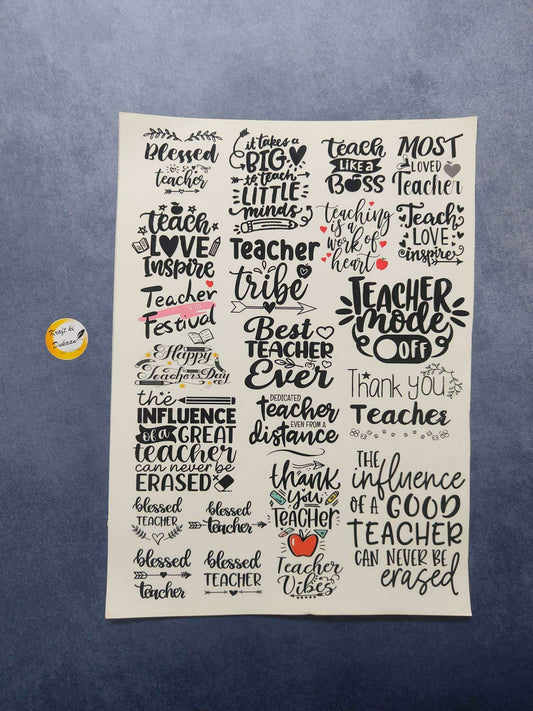 Blessed
teacher
it takes a
BIG
to teach
LITTLE
minds
teach
LIKE A
BOSS
MOST
LOVED
Teacher
teach
LOVE
Inspire
teaching
is a
work of
heart
Teach
LOVE
inspire
Teacher
tribe
Teacher
Festival
TEACHER
mode
OFF
Kraft ki
Dukaan
Best
TEACHER
Ever
Happy
Teachers Day
Thank you
Teacher
the
INFLUENCE
of a GREAT
teacher
can never be
ERASED
DEDICATED
teacher
EVEN FROM A
distance
THE
influence
OF A GOOD
TEACHER
CAN NEVER BE
erased
thank
you
TEACHER
blessed
TEACHER
blessed
teacher
blessed
teacher
blessed
TEACHER
Teacher
Vibes